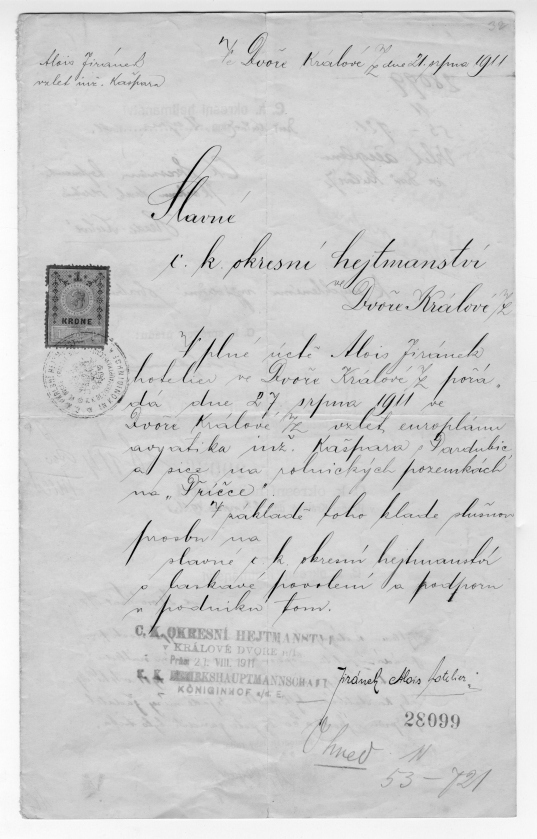 Ve Dvoře Králové n/L dne 21. srpna 1911
Alois Jiránek
vzlet inž. Kašpara
Slavné
c. k. okresní hejtmanství
ve
Dvoře Králové n/L
V plné úctě Alois Jiránek
hotelier ve Dvoře Králové n/L pořá„
dá dne 27 srpna 1911 ve
Dvoře Králové n/L vzlet europlánu
avyatika inž. Kašpara z Pardubic
a sice na rolnických pozemkách
na „Příčce”.
V základě toho klade slušnou
prosbu na
slavné c. k. okresní hejtmanství
o laskavé povolení a podporu
v podniku tom.
1
KRONE
C. K. OKRESNÍ HEJTMANSTVÍ
v KRÁLOVÉ DVOŘE n/L
Präs 21. VIII. 1911
K. K. BEZIRKSHAUPTMANNSCHAFT
KÖNIGINHOF a/d E.
Jiránek Alois hotelier
28099
Ihned N
53-721